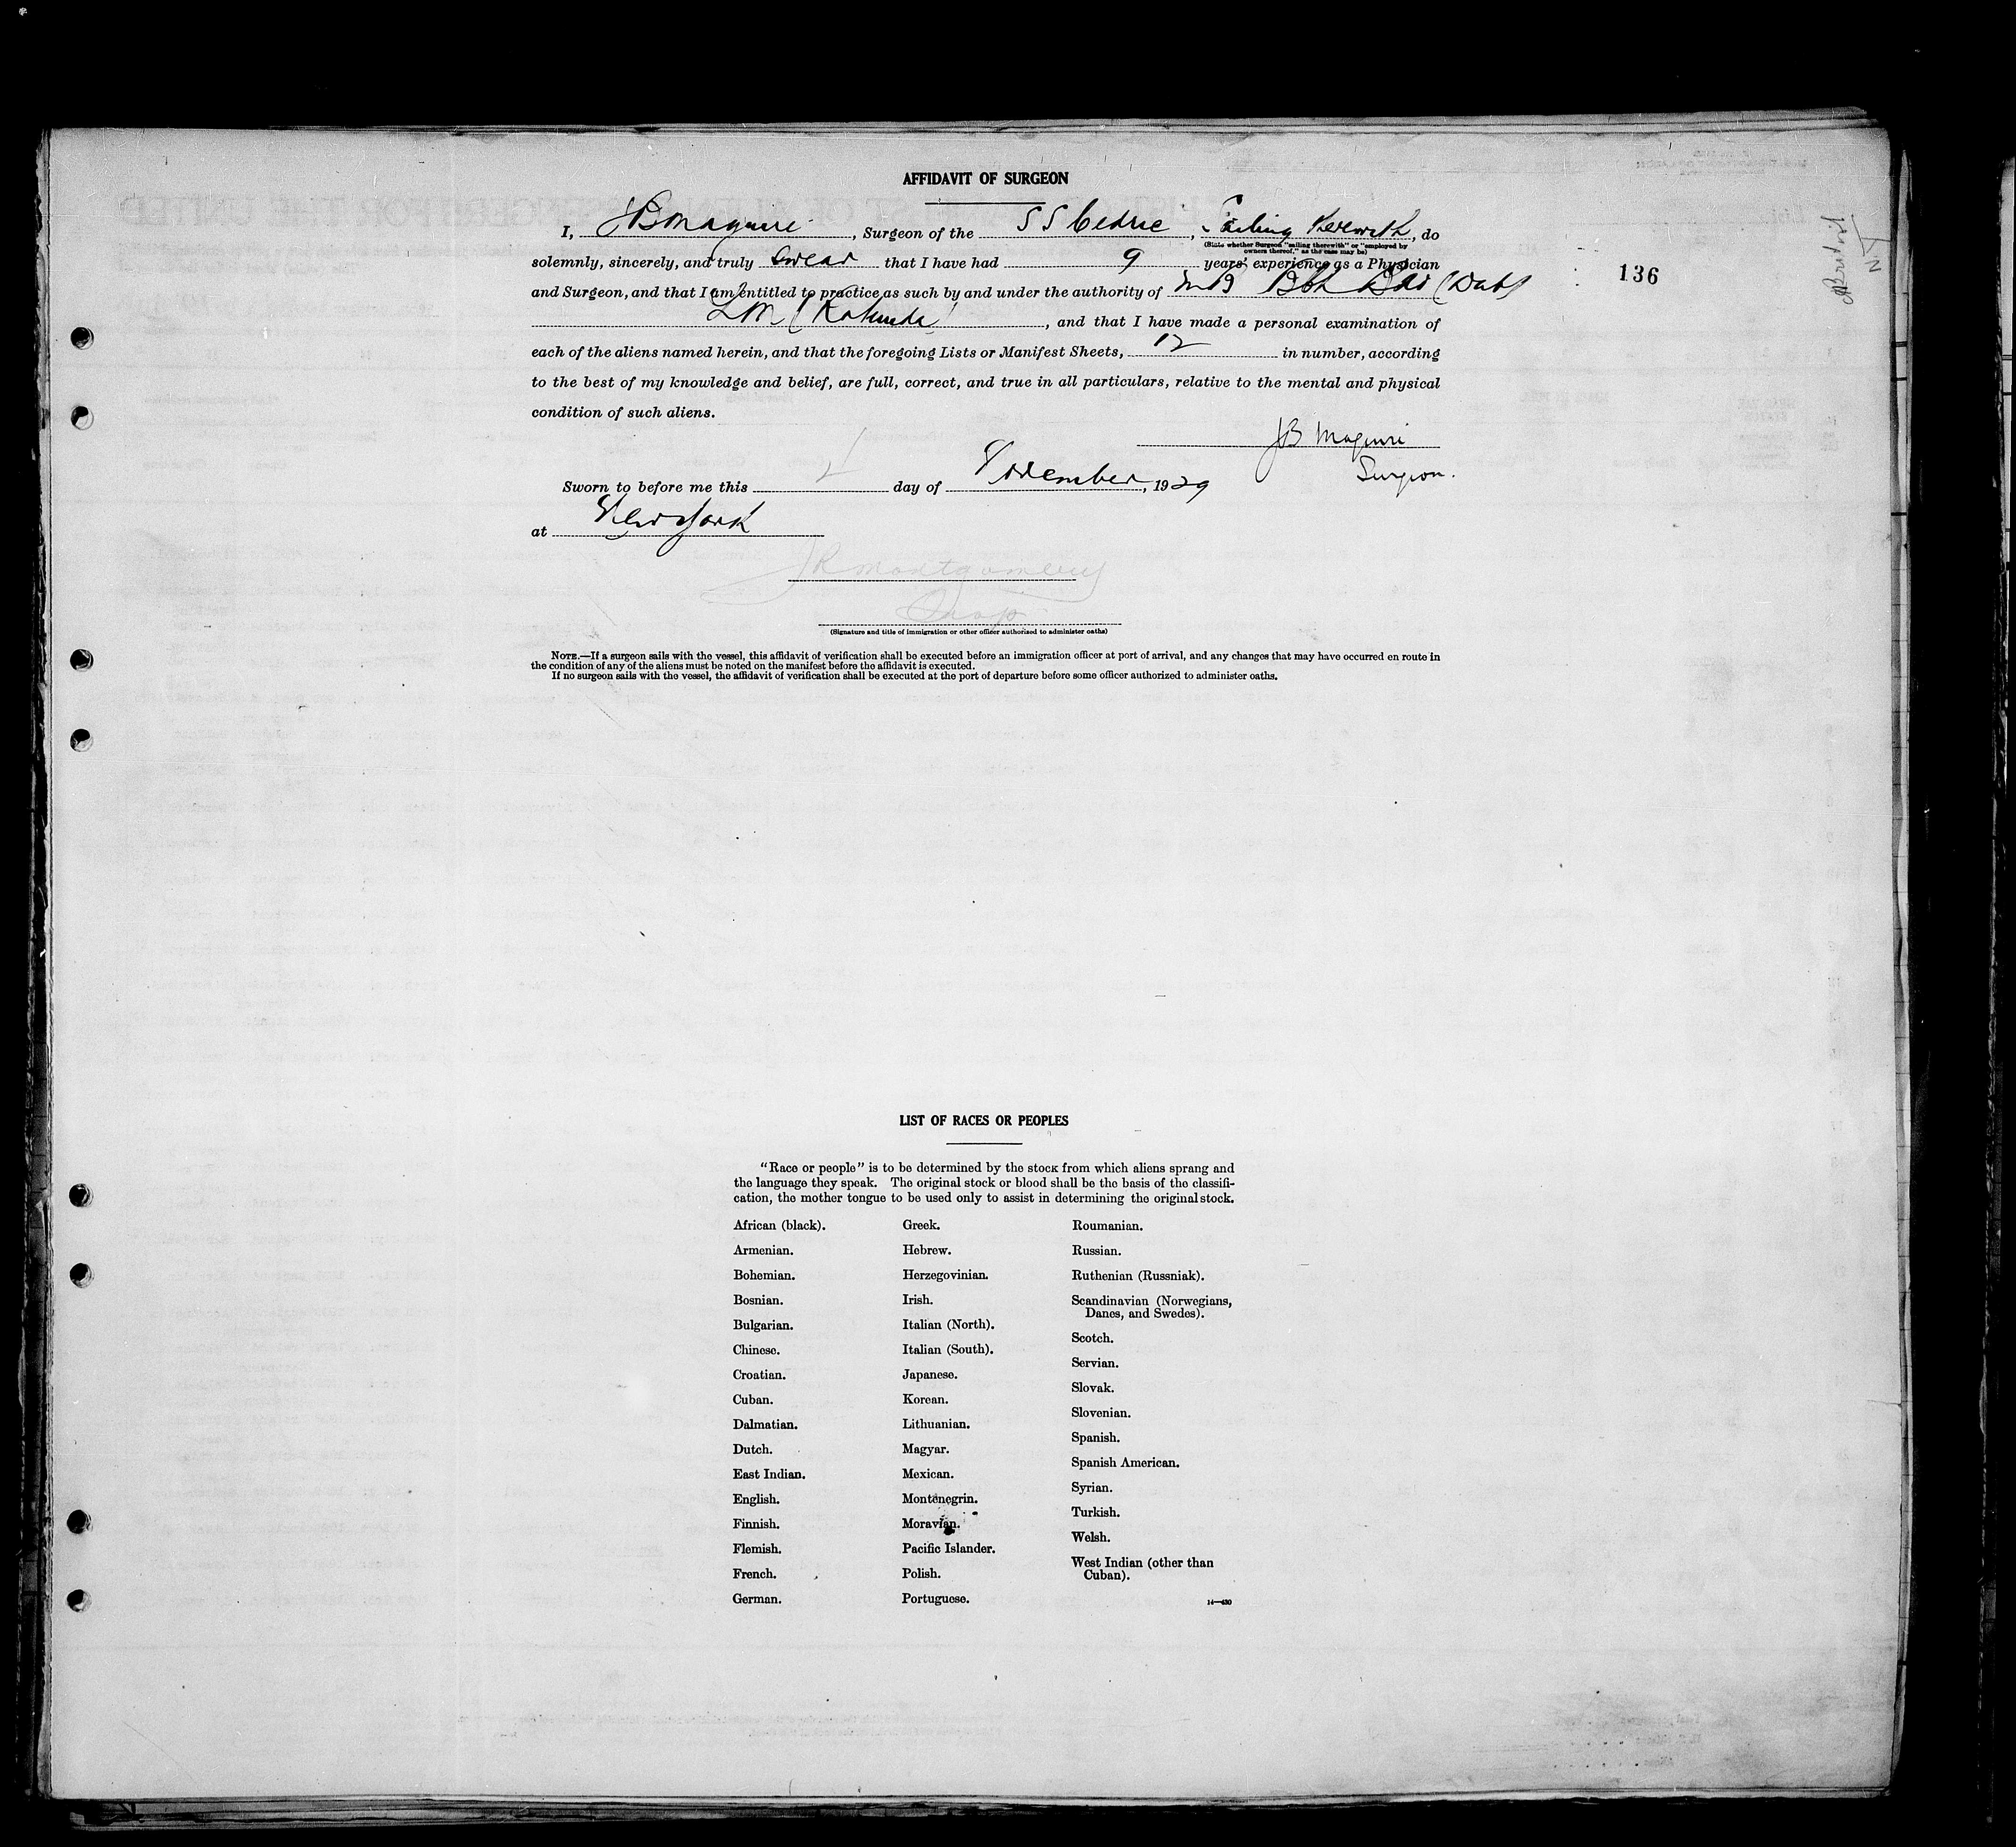 AFFIDAVIT OF SURGEON
I, JB Maguire, Surgeon of the SS Cedric, Sailing therewith, do
(State whether Surgeon "sailing therewith" or "employed by
owners thereof," as the case may be)
solemnly, sincerely, and truly swear that I have had 9 years' experience as a Physician
and Surgeon, and that I am entitled to practice as such by and under the authority of MB BCh BAO (Dub)
LM (Rotunda), and that I have made a personal examination of
each of the aliens named herein, and that the foregoing Lists or Manifest Sheets, 12 in number, according
to the best of my knowledge and belief, are full, correct, and true in all particulars, relative to the mental and physical
condition of such aliens.
JB Maguire
Surgeon.
Sworn to before me this day of November, 1929
at New York
JR Montgomery
Insp
(Signature and title of immigration or other officer authorized to administer oaths)
NOTE.—If a surgeon sails with the vessel, this affidavit of verification shall be executed before an immigration officer at port of arrival, and any changes that may have occurred en route in
the condition of any of the aliens must be noted on the manifest before the affidavit is executed.
If no surgeon sails with the vessel, the affidavit of verification shall be executed at the port of departure before some officer authorized to administer oaths.
136
LIST OF RACES OR PEOPLES
"Race or people" is to be determined by the stock from which aliens sprang and
the language they speak. The original stock or blood shall be the basis of the classifi-
cation, the mother tongue to be used only to assist in determining the original stock.
African (black).
Armenian.
Bohemian.
Bosnian.
Bulgarian.
Chinese.
Croatian.
Cuban.
Dalmatian.
Dutch.
East Indian.
English.
Finnish.
Flemish.
French.
German.
Greek.
Hebrew.
Herzegovinian.
Irish.
Italian (North).
Italian (South).
Japanese.
Korean.
Lithuanian.
Magyar.
Mexican.
Montenegrin.
Moravian.
Pacific Islander.
Polish.
Portuguese.
Roumanian.
Russian.
Ruthenian (Russniak).
Scandinavian (Norwegians,
Danes, and Swedes).
Scotch.
Servian.
Slovak.
Slovenian.
Spanish.
Spanish American.
Syrian.
Turkish.
Welsh.
West Indian (other than
Cuban).
14—430